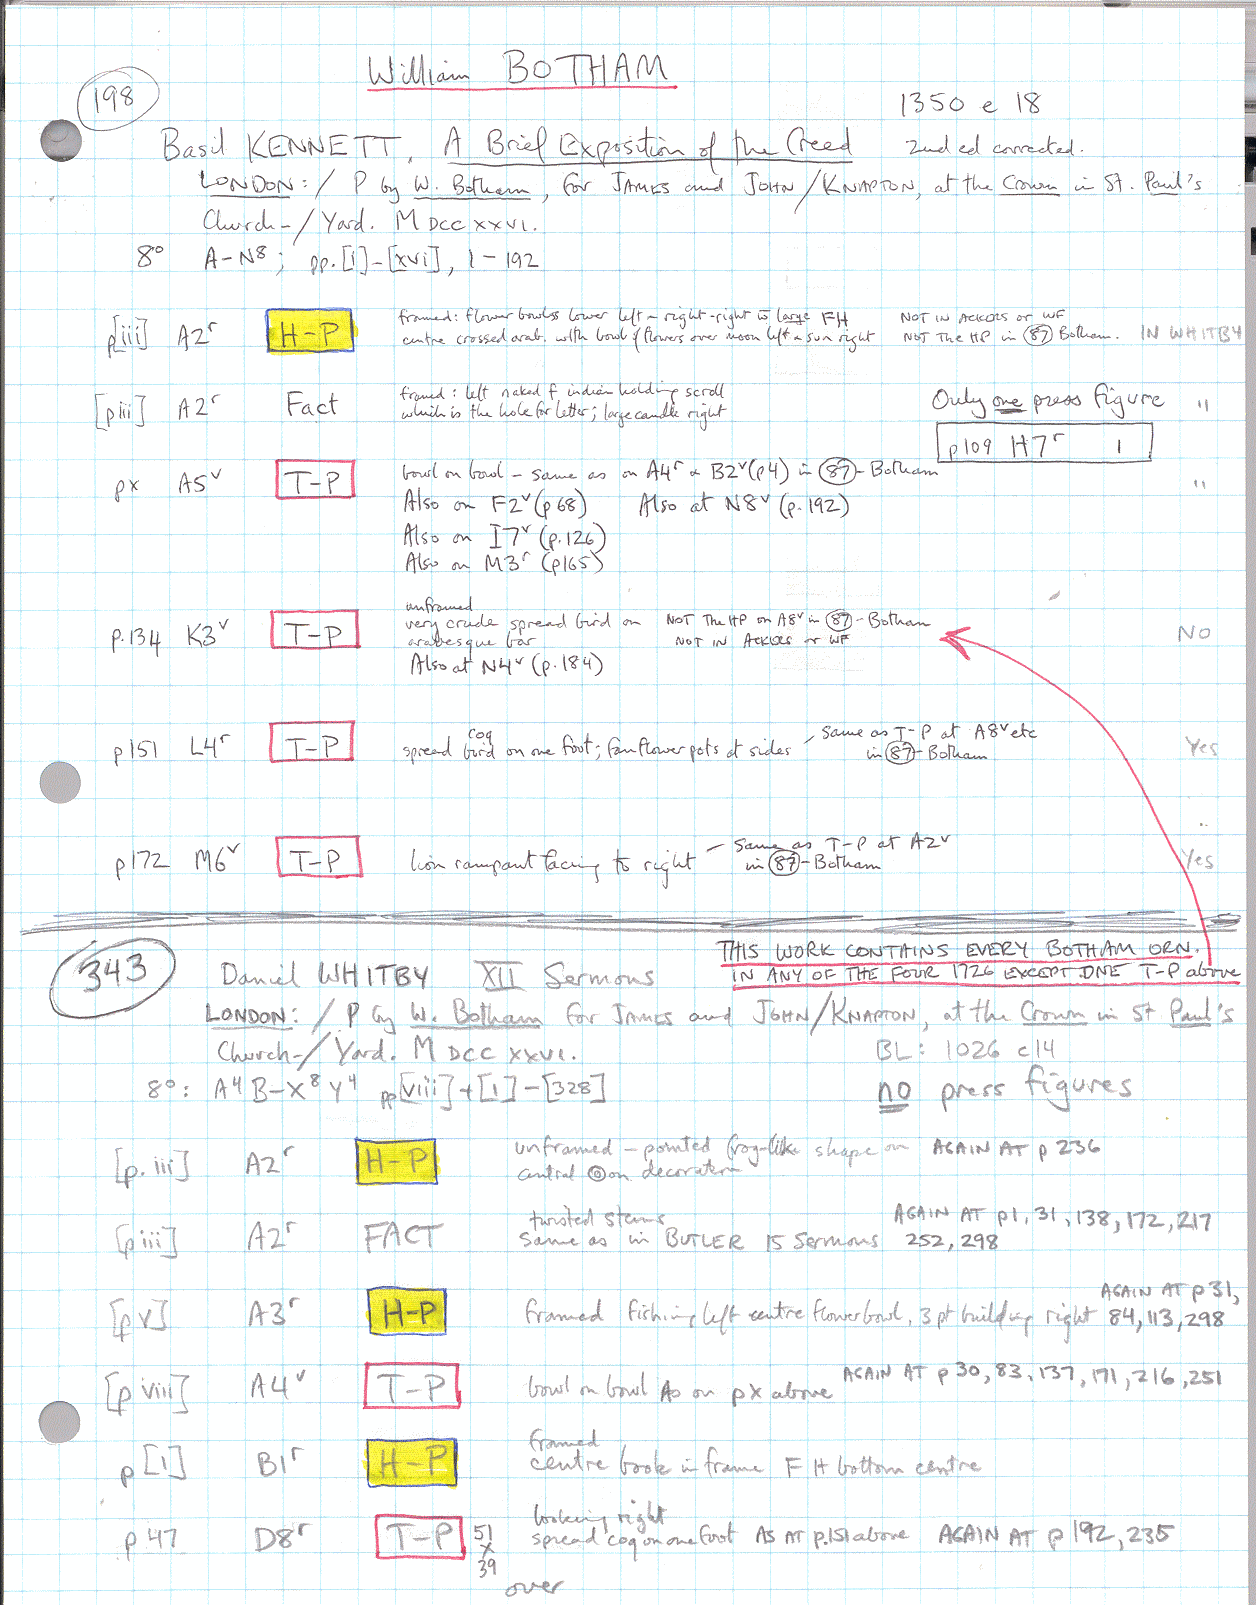 William BOTHAM
198
1350 e 18
Basil KENNETT, A Brief Exposition of the Creed 2nd ed corrected.
LONDON: / P by W. Botham, for JAMES and JOHN / KNAPTON, at the Crown in St. Paul's
Church-/Yard. M DCC XXVI.
8° A-N⁸; pp. [i]-[xvi], 1-192
p[iii] A2ʳ H-P framed: flower bowls lower left - right-right is large FH NOT IN ACKERS or WF
centre crossed arab. with bowl of flowers over moon left & sun right NOT THE HP in 87 Botham. IN WHITBY
[piii] A2ʳ Fact framed: left naked f indian holding scroll
which is the hole for letter; large candle right
Only one press figure "
p109 H7ʳ 1
px A5ᵛ T-P bowl on bowl - same as on A4ʳ & B2ᵛ (p4) in 87 - Botham "
Also on F2ᵛ (p68) Also at N8ᵛ (p.192)
Also on I7ᵛ (p.126)
Also on M3ʳ (p165)
p.134 K3ᵛ T-P unframed
very crude spread bird on NOT THE HP on A8ᵛ in 87 - Botham No
arabesque bar NOT IN ACKERS or WF
Also at N4ᵛ (p.184)
p151 L4ʳ T-P spread coq bird on one foot; fanflower pots at sides - Same as T-P at A8ᵛ etc Yes
in 87 - Botham
p172 M6ᵛ T-P lion rampant facing to right - Same as T-P at A2ᵛ
in 87 - Botham Yes
THIS WORK CONTAINS EVERY BOTHAM ORN.
IN ANY OF THE FOUR 1726 EXCEPT ONE T-P above
343 Daniel WHITBY XII Sermons
LONDON: / P by W. Botham for JAMES and JOHN / KNAPTON, at the Crown in St Paul's
Church-/Yard. M DCC XXVI. BL: 1026 c14
8°: A⁴ B-X⁸ Y⁴ pp[viii] + [1] - [328] no press figures
[p.iii] A2ʳ H-P unframed - pointed frog-like shape on AGAIN AT p 236
central on decoration
[piii] A2ʳ FACT twisted stems AGAIN AT p1, 31, 138, 172, 217
Same as in BUTLER 15 Sermons 252, 298
[pv] A3ʳ H-P framed fishing left centre flowerbowl, 3pt building right AGAIN AT p31,
84, 113, 298
[p viii] A4ᵛ T-P bowl on bowl AS on px above AGAIN AT p30, 83, 137, 171, 216, 251
p[1] B1ʳ H-P framed
centre book in frame FH bottom centre
p47 D8ʳ T-P 51 x 39 looking right
spread coq on one foot AS AT p.151 above AGAIN AT p192, 235
over